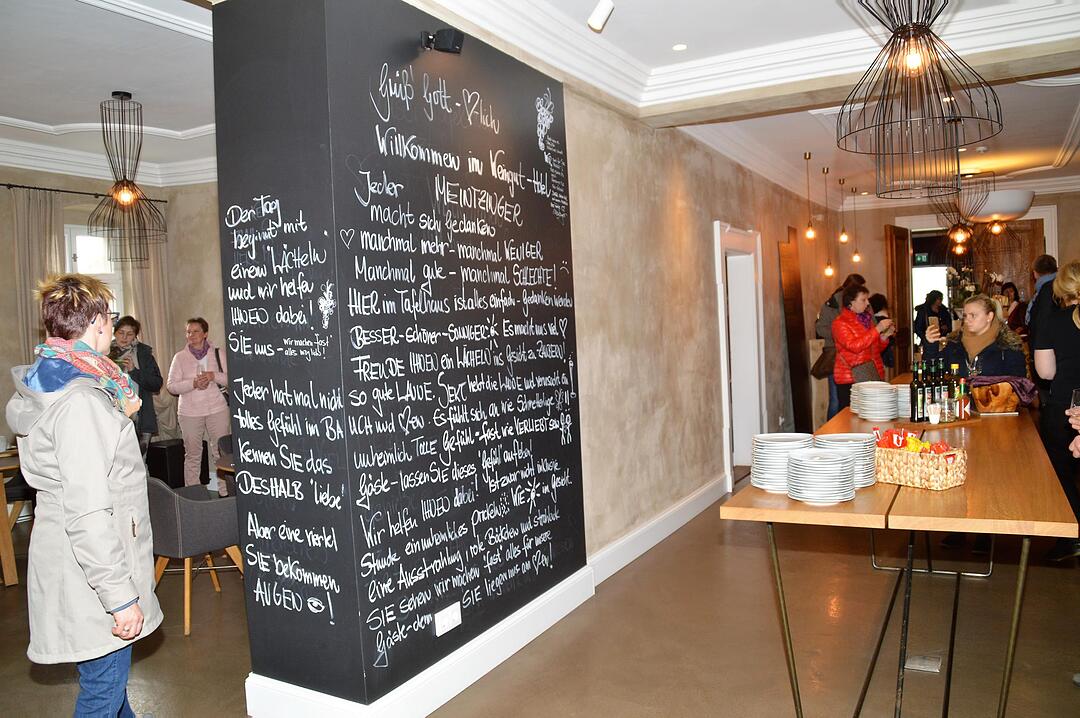 Der Tag
beginnt mit
einem "LÄCHELN"
und wir helfen
IHNEN dabei!
SIE uns - wir machen "fast"
alles möglich!
Jeder hat mal nich
tolles Gefühl im BA
Kennen SIE das
DESHALB "liebe
Aber eine viertel
SIE bekommen
AUGEN !
Grüß Gott - ♡lich
Willkommen im Weingut-Hotel
MEINTZINGER
Jeder
macht sich Gedanken
♡ manchmal mehr - manchmal WENIGER
Manchmal gute - manchmal SCHLECHTE!
HIER im Tafelhaus ist alles einfach - Gedanken werden
BESSER - schöner - SONNIGER Es macht uns viel ♡
FREUDE IHNEN ein LÄCHELN ins Gesicht zu ZAUBERN!
so gute LAUNE. SEKT hebt die LAUNE und verursacht ein
LICH und ♡en. Es fühlt sich an wie Schmetterlinge
unheimlich TOLLE Gefühl - fast wie VERLIEBT sein
Gäste - lassen SIE dieses "Gefühl" aufleben!
Wir helfen IHNEN dabei! Ist zwar nicht inklusive
Stunde ein unheimliches Prickeln WIE im Gesicht.
eine Ausstrahlung, rote Bäckchen und strahlende
SIE sehen wir machen "fast" alles für unsere
Gäste - denn SIE liegen uns am ♡en!